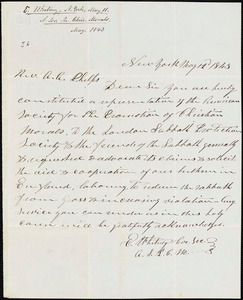 E. Whitney, N. York, May 11.
May. 1843
New York May 10th 1843
Rev. A. A. Phelps.
Dear Sir You are duly
constituted a representative of the American
Society for the Promotion of Christian
Morals, to the London Sabbath Protection
Society & the friends of the Sabbath generally
& requested to advocate its claims & solicit
the aid & cooperation of our brethren in
England, laboring to redeem the Sabbath
from gross & increasing violation. Any
service you can render us in this holy
cause will be gratefully acknowledged.
E. Whitney Cor Sec